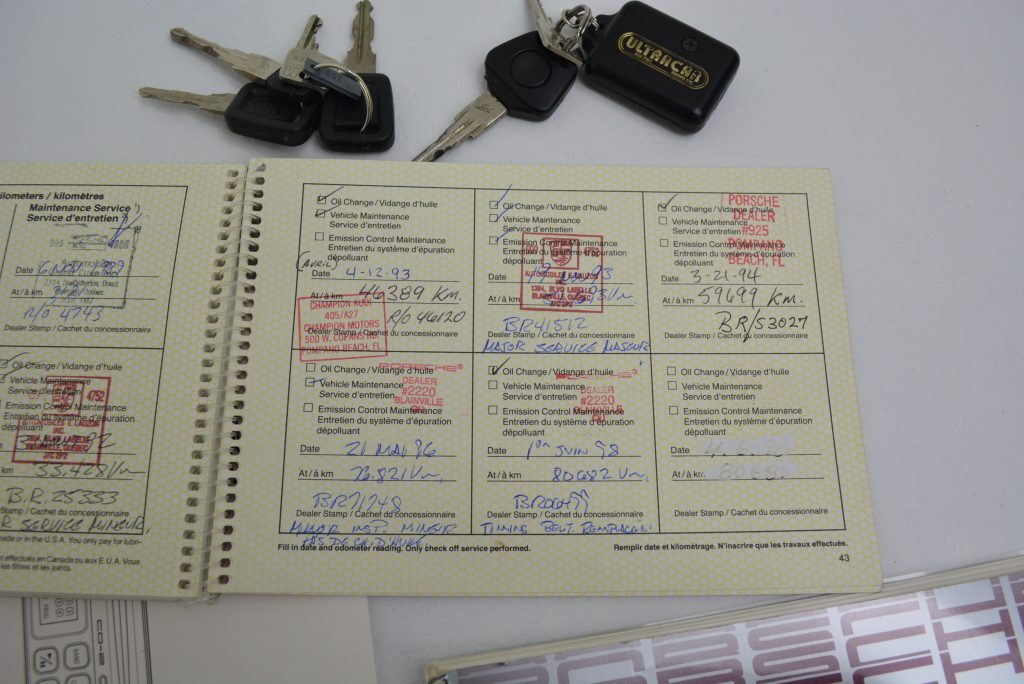 ULTRACAR
ilometers / kilomètres
Maintenance Service
Service d'entretien
Date
At/à km
R/O 4743
Dealer Stamp / Cachet du concessionnaire
Oil Change / Vidange d'huile
Vehicle Maintenance
Service d'entretien
4752
Emission Control Maintenance
Entretien du système d'épuration
dépolluant
AUTOMOBILES E. LAUZON
INC.
BLAINVILLE, QUEBEC
Date
km 33,428 Km
B.R. 25333
Dealer Stamp / Cachet du concessionnaire
R SERVICE MINEUR
nada or in the U.S.A. You only pay for lubri-
t effectués en Canada ou aux E.U.A. Vous
les filtres et les joints.
Oil Change / Vidange d'huile
Vehicle Maintenance
Service d'entretien
Emission Control Maintenance
Entretien du système d'épuration
dépolluant
(AVRIL)
Date 4-12-93
At/à km 46389 Km.
R/O 46120
CHAMPION AUDI
405/A27
CHAMPION MOTORS
500 W. COPANS RD.
POMPANO BEACH, FL.
Dealer Stamp / Cachet du concessionnaire
Oil Change / Vidange d'huile
Vehicle Maintenance
Service d'entretien
Emission Control Maintenance
Entretien du système d'épuration
dépolluant
AUTOMOBILES E. LAUZON
1384, BLVD LABELLE
BLAINVILLE, QUEBEC
J7C 2P2
Date 93
At/à km
BR41512
Dealer Stamp / Cachet du concessionnaire
MAJOR SERVICE MAJEUR
Oil Change / Vidange d'huile
Vehicle Maintenance
Service d'entretien
Emission Control Maintenance
Entretien du système d'épuration
dépolluant
PORSCHE
DEALER
#925
POMPANO
BEACH, FL
Date 3-21-94
At/à km 59699 Km.
BR/53027
Dealer Stamp / Cachet du concessionnaire
Oil Change / Vidange d'huile
Vehicle Maintenance
Service d'entretien
Emission Control Maintenance
Entretien du système d'épuration
dépolluant
PORSCHE
DEALER
#2220
BLAINVILLE
Date 21 MAI 96
At/à km 76.821 Km,
BR71748
Dealer Stamp / Cachet du concessionnaire
MINOR INSP. MINEUR
PAS DE CH. D'HUILE
Oil Change / Vidange d'huile
Vehicle Maintenance
Service d'entretien
Emission Control Maintenance
Entretien du système d'épuration
dépolluant
PORSCHE
DEALER
#2220
Date 1er JUIN 98
At/à km 80682 Km,
Dealer Stamp / Cachet du concessionnaire
TIMING BELT REMPLACE
Oil Change / Vidange d'huile
Vehicle Maintenance
Service d'entretien
Emission Control Maintenance
Entretien du système d'épuration
dépolluant
Date
At/à km 80685.
Dealer Stamp / Cachet du concessionnaire
Fill in date and odometer reading. Only check off service performed.
Remplir date et kilométrage. N'inscrire que les travaux effectués.
43